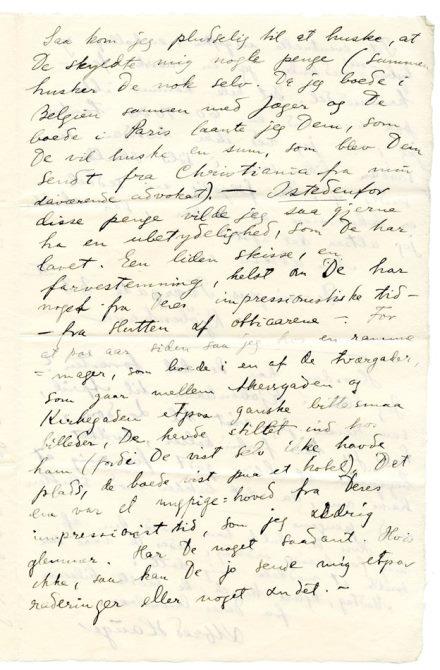 Saa kom jeg pludselig til at huske, at
De skyldte mig nogle penge (summen
husker De nok selv Da jeg boede i
Belgien sammen med Jæger og De
boede i Paris laante jeg Dem, som
De vil huske en sum, som blev Dem
sendt fra Christiania fra min
daværende advokat). — Istedenfor
disse penge vilde jeg saa gjerne
ha en ubetydelighed, som De har
lavet. En liden skisse, en
farvestemning, helst om De har
noget fra Deres impressionistiske tid –
– fra slutten af otticarene –. For
et par aar siden saa jeg hos en ramme
= mager, som boede i en af de tværgader,
som gaar mellem Akersgaden og
Kirkegaden etpar ganske bittesmaa
billeder, De havde stillet ind hos
ham (fordi De vist selv ikke havde
plads, De boede vist paa et hotel). Det
ene var et ungpige=hoved fra Deres
impressionist tid, som jeg aldrig
glemmer. Har De noget saadant. Hvis
ikke, saa kan De jo sende mig etpar
raderinger eller noget andet. –